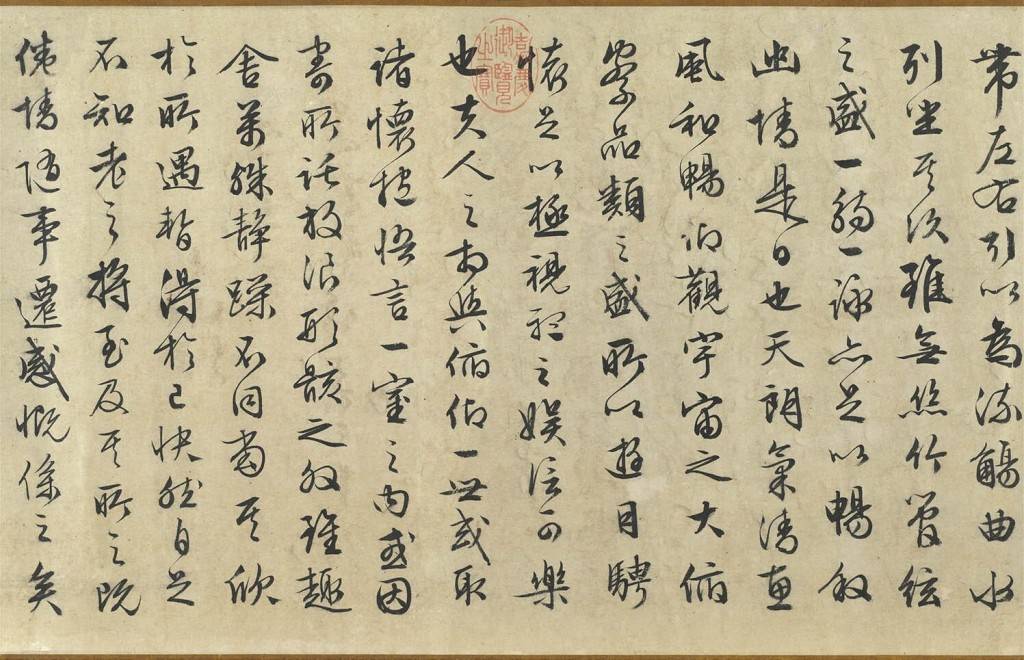 帶左右引以為流觴曲水
列坐其次雖無絲竹管絃
之盛一觴一詠亦足以暢敘
幽情是日也天朗氣清惠
風和暢仰觀宇宙之大俯
察品類之盛所以遊目騁
懷足以極視聽之娛信可樂
也夫人之相與俯仰一世或取
諸懷抱悟言一室之內或因
寄所託放浪形骸之外雖趣
舍萬殊靜躁不同當其欣
於所遇暫得於己快然自足
不知老之將至及其所之既
倦情隨事遷感慨係之矣
嘉慶御覽之寶